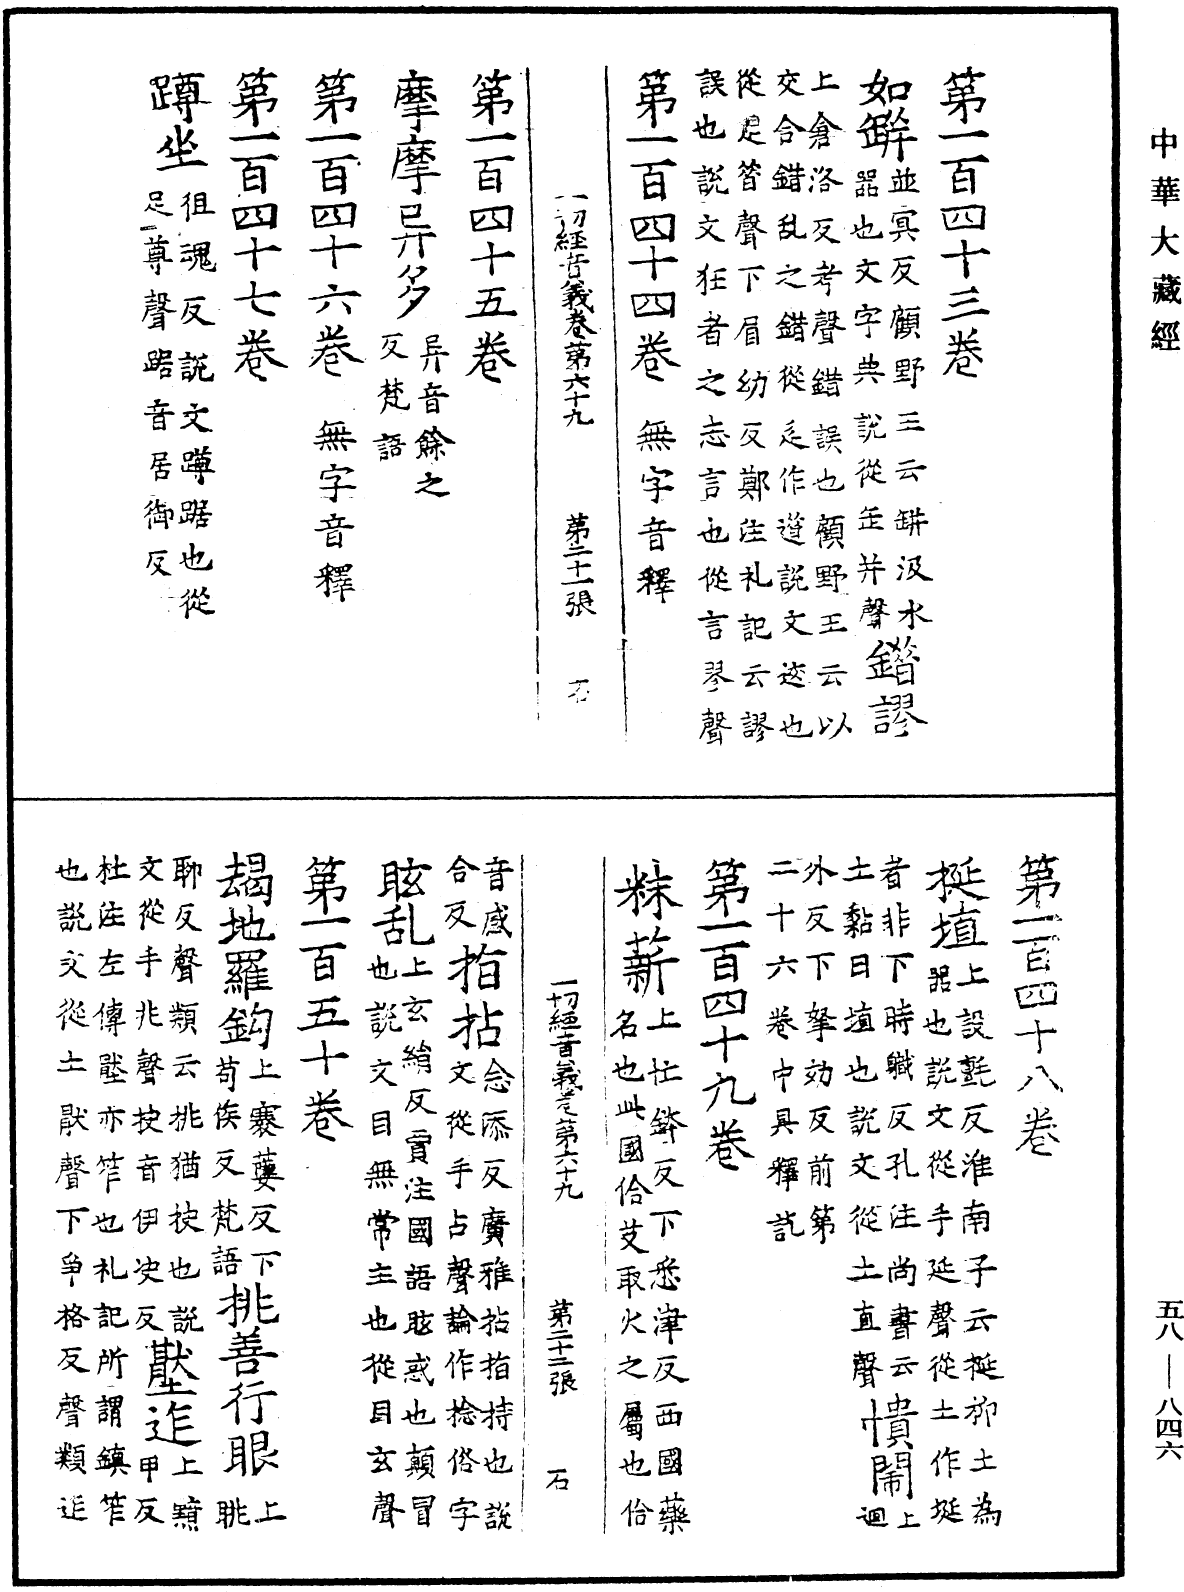 中華大藏經
第一百四十三卷
如缾並冥反顧野王云缾汲水
器也文字典說從缶并聲鐕謬
上倉洛反考聲錯誤也顧野王云以
交合錯乱之錯從辵作遒說文迹也
從辵㫺聲下眉幼反鄭注礼記云謬
誤也說文狂者之忘言也從言翏聲
第一百四十四卷 無字音釋
一切經音義卷第六十九 第二十一張 石
第一百四十五卷
摩摩异多异音餘之
反梵語
第一百四十六卷 無字音釋
第一百四十七卷
蹲坐徂魂反說文蹲踞也從
足尊聲踞音居御反
第一百四十八卷
挻埴上設氈反淮南子云挻抑土為
器也說文從手延聲從土作埏
者非下時軄反孔注尚書云
土黏曰埴也說文從土直聲憒閙上迴
外反下拏効反前第
二十六卷中具釋訖
第一百四十九卷
粖薪上忙鉢反下悉津反西國藥
名也此國佮艾取火之屬也佮
一切經音義卷第六十九 第二十二張 石
音感
合反指拈念添反廣雅拈指持也說
文從手占聲論作捻俗字
眩乱上玄絹反賈注國語眩惑也顛冒
也說文目無常主也從目玄聲
第一百五十卷
朅地羅鈎上褰蘷反下
苟侯反梵語挑善行眼上眺
聊反聲類云挑猶抉也說
文從手兆聲抉音伊决反壓迮上黶甲反
杜注左傳壓亦笮也礼記所謂鎮笮
也說文從土猒聲下爭格反聲類迮
五八—八四六